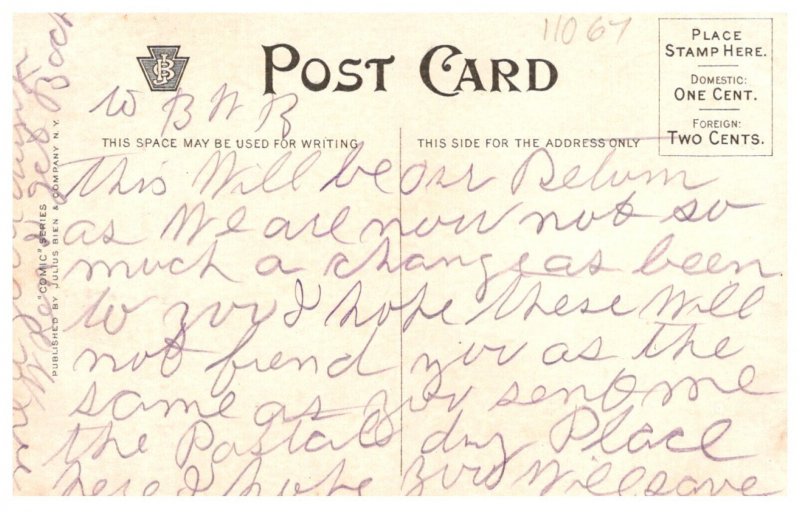 11067
POST CARD
PLACE
STAMP HERE.
DOMESTIC:
ONE CENT.
FOREIGN:
TWO CENTS.
JB
to B W B
THIS SPACE MAY BE USED FOR WRITING
THIS SIDE FOR THE ADDRESS ONLY
This Will be our Return
as We are now not so
much a change as been
to you I hope these Will
not friend you as the
same as you sent me
the Postals dug Place
here I hope you Will save
"COMIC" SERIES
PUBLISHED BY JULIUS BIEN & COMPANY N.Y.